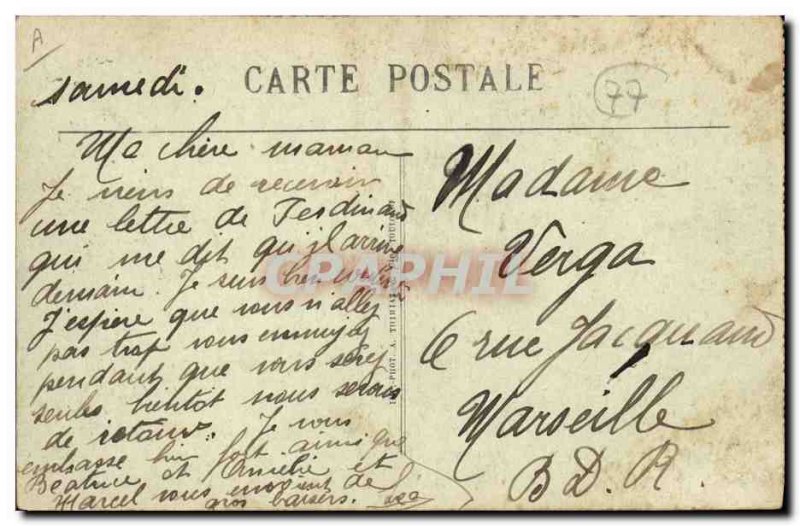 A
samedi.
CARTE POSTALE
77
Ma chère maman
Je viens de recevoir
une lettre de Ferdinand
qui me dit qu'il arrive
demain. Je suis bien
J'espère que vous n'allez
pas trop vous ennuyer
pendant que vous serez
seules bientôt nous serons
de retour. Je vous
embrasse bien fort ainsi que
et Amélie et
Marcel vous envoient de
gros baisers.
Madame
Verga
6 rue Jacquand
Marseille
B D. R.
CPAPHIL
PHOT. A. THIRIAT